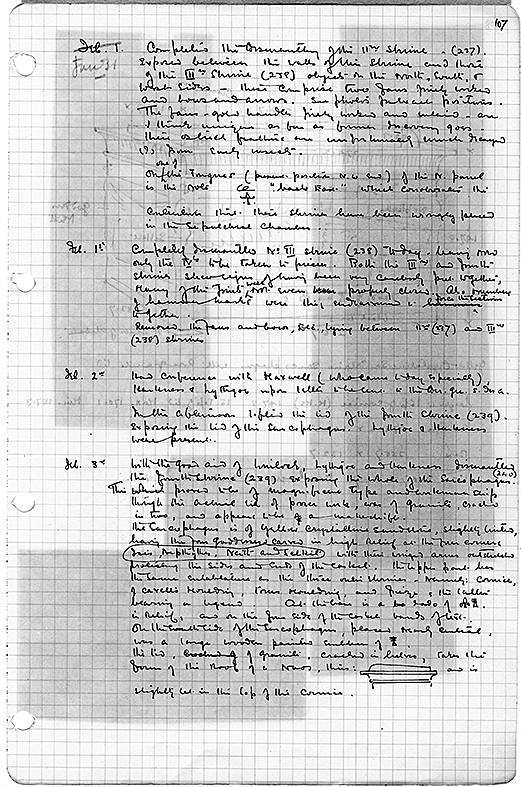 107
Feb. 1.
Jan. 31 Completed the dismantling of the IInd Shrine - (237).
Exposed between the walls of this Shrine and those
of the IIIrd Shrine (238) objects on the North, South, &
West sides - these comprise two fans finely worked
and bows and arrows. See photos for exact positions.
The fans - gold handles finely worked and inlaid - are
I think unique as far as former discovery goes -
their ostrich feathers are unfortunately much decayed
from insects.
one of
On the Tongues (present position N.W. end) of the N. panel
is the note "back East." which corroborates the
that these shrines have been wrongly placed
in the Sepulchral Chamber
Feb. 1st Completed dismantling No. III shrine (238) today, leaving now
only the IVth to be taken to pieces. Both the IIIrd and fourth
shrines show signs of having been very carelessly put together,
many of the joints not even properly closed. Also numbers
of hammer marks where they endeavoured to
together.
Removed the fans and bows, etc., lying between IInd (237) and IIIrd
(238) shrines
Feb. 2nd Had conference with Maxwell (who came today especially)
Harkness & Lythgoe upon
In the afternoon I lifted the lid of the fourth Shrine (239).
Exposing the lid of the Sarcophagus. Lythgoe & Harkness
were present.
Feb. 3rd With the good aid of Winlock, Lythgoe and Harkness dismantled
the fourth shrine (239) exposing the whole of the Sarcophagus. (240)
This proved to be of magnificent type and workmanship
though the actual lid of poorer work, was of granite, cracked
in two, and appears to be
The Sarcophagus is of Yellow Crystalline Sandstone, slightly tinted,
having the four goddesses carved in high relief at the four corners
Isis, Nephthys, Neith and Selkit with their winged arms outstretched
protecting the sides and ends of the casket. The upper part has
the same entablature as the three outer shrines - Namely: Cornice,
of cavetto Moulding, Torus Moulding, and Frieze & the latter
bearing a legend. At the base is a dado of
in Relief, and on the four sides of the casket bands of text.
On the South side of the Sarcophagus, placed nearly central,
was a large wooden painted emblem of
the lid, of granite, cracked in halves, takes the
form of the Roof of a Naos, thus: and is
slightly let in the top of the Cornice.